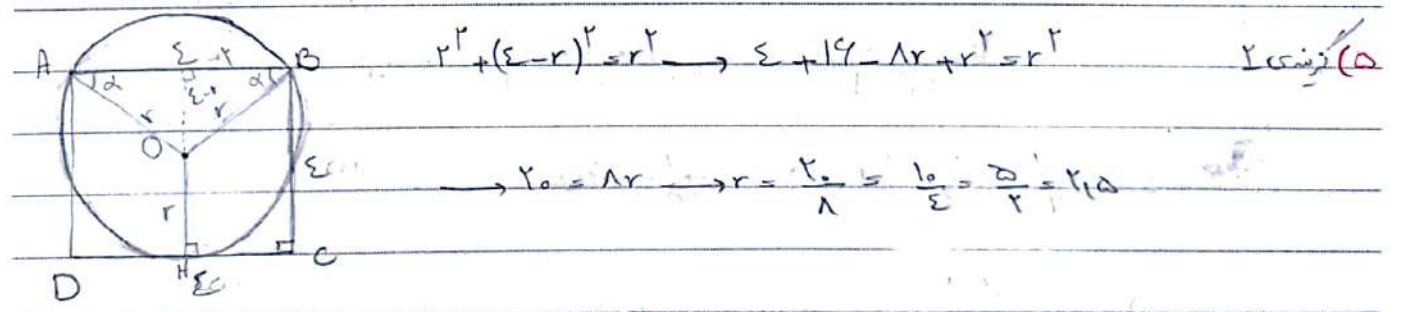 ۵) گزینه‌ی ۲
۲^۲ + (۴-r)^۲ = r^۲ → ۴ + ۱۶ - ۸r + r^۲ = r^۲
→ ۲۰ = ۸r → r = ۲۰/۸ = ۱۰/۴ = ۵/۲ = ۲,۵
A
B
α
α
۴-r
r
r
O
r
۴
D
H
۴
C